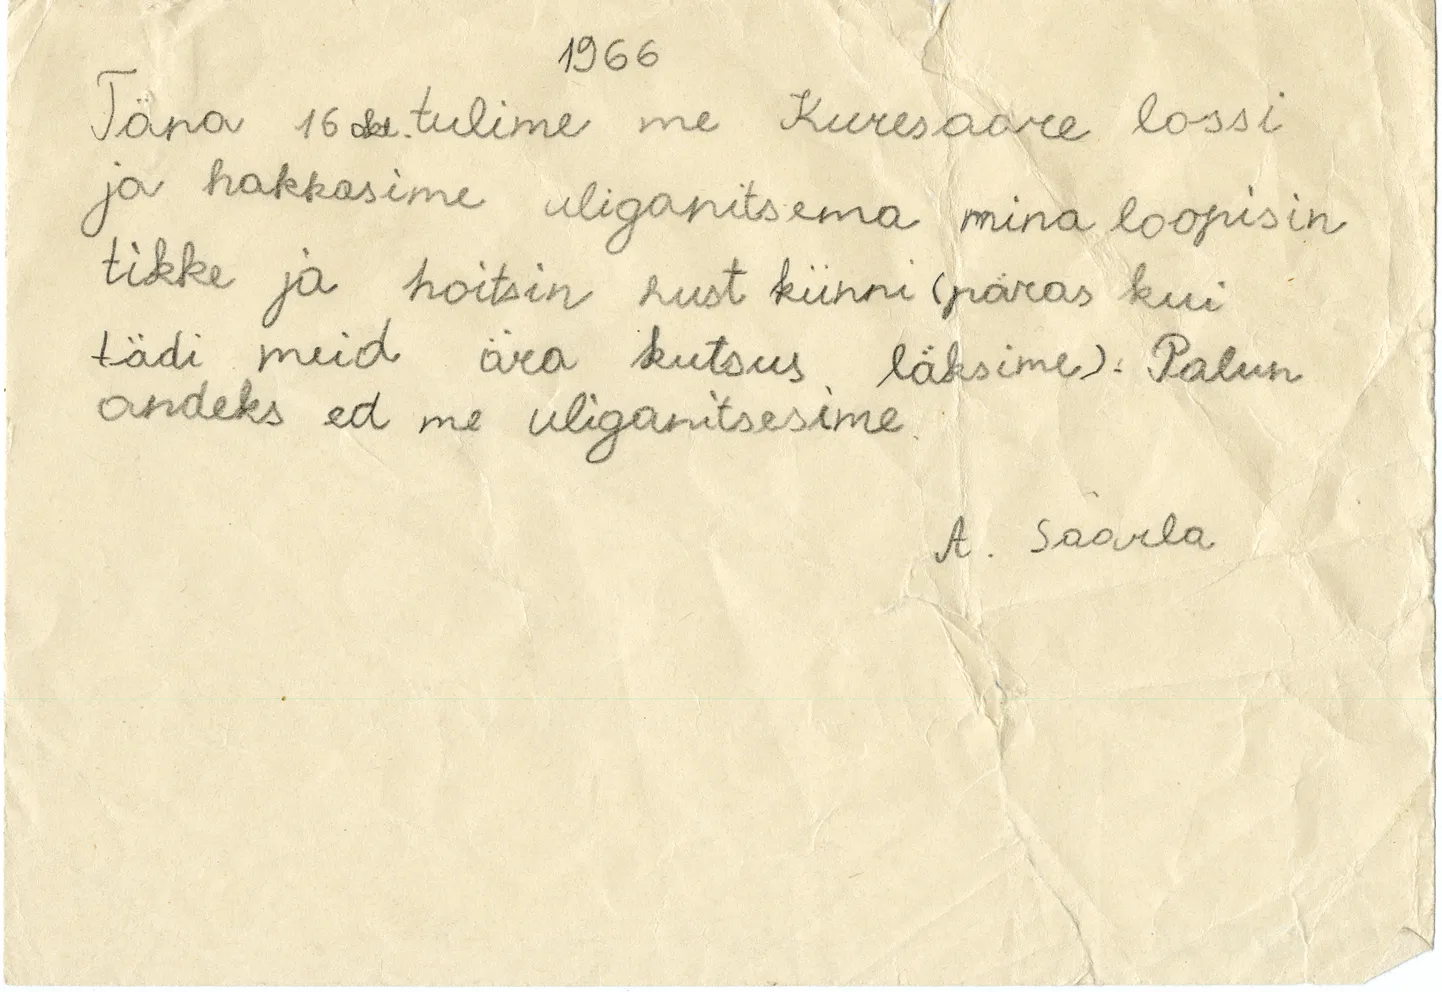 1966
Täna 16 okt. tulime me Kuresaare lossi
ja hakkasime uliganitsema mina loopisin
tikke ja hoitsin ust kiinni (päras kui
tädi meid ära kutsus läksime). Palun
andeks ed me uliganitsesime.
A. Saarla